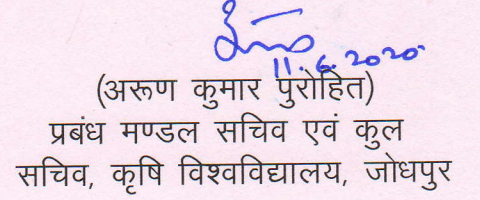 11.6.2020
(अरूण कुमार पुरोहित)
प्रबंध मण्डल सचिव एवं कुल
सचिव, कृषि विश्वविद्यालय, जोधपुर